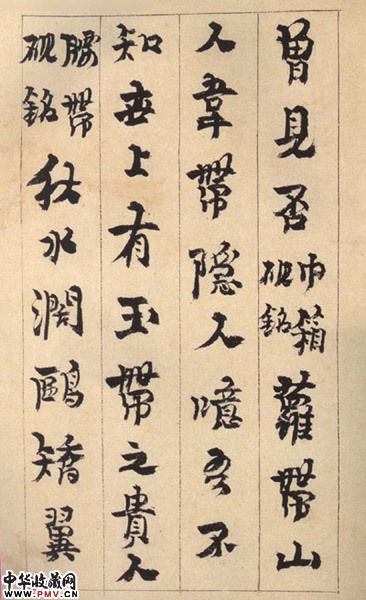 曾見否巾箱硯銘蘿帶山
人韋帶隱人噫吾不
知世上有玉帶之貴人
腰帶硯銘秋水濶鷗矯翼
中华收藏网
WWW.PMV.CN